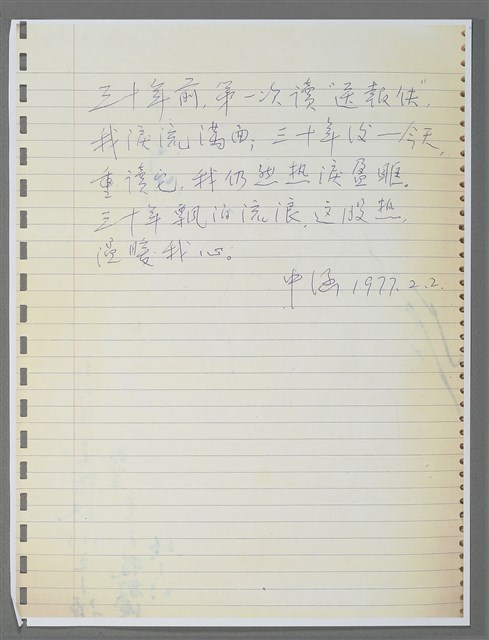 三十年前，第一次读“送報伕”，
我淚流滿面；三十年后—今天，
重讀它，我仍然热淚盈眶。
三十年飄泊流浪，这股热，
溫暖我心。
中涵 1977.2.2.